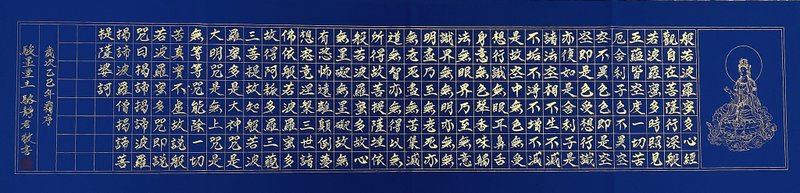 般若波羅蜜多心經
觀自在菩薩行深般
若波羅蜜多時照見
五蘊皆空度一切苦
厄舍利子色不異空
空不異色色即是空
空即是色受想行識
亦復如是舍利子是
諸法空相不生不滅
不垢不淨不增不減
是故空中無色無受
想行識無眼耳鼻舌
身意無色聲香味觸
法無眼界乃至無意
識界無無明亦無無
明盡乃至無老死亦
無老死盡無苦集滅
道無智亦無得以無
所得故菩提薩埵依
般若波羅蜜多故心
無罣礙無罣礙故無
有恐怖遠離顛倒夢
想究竟涅槃三世諸
佛依般若波羅蜜多
故得阿耨多羅三藐
三菩提故知般若波
羅蜜多是大神咒是
大明咒是無上咒是
無等等咒能除一切
苦真實不虛故說般
若波羅蜜多咒即說
咒曰揭諦揭諦波羅
揭諦波羅僧揭諦菩
提薩婆訶
歲次乙巳年序
駿墨堂主 駱靜君 敬書